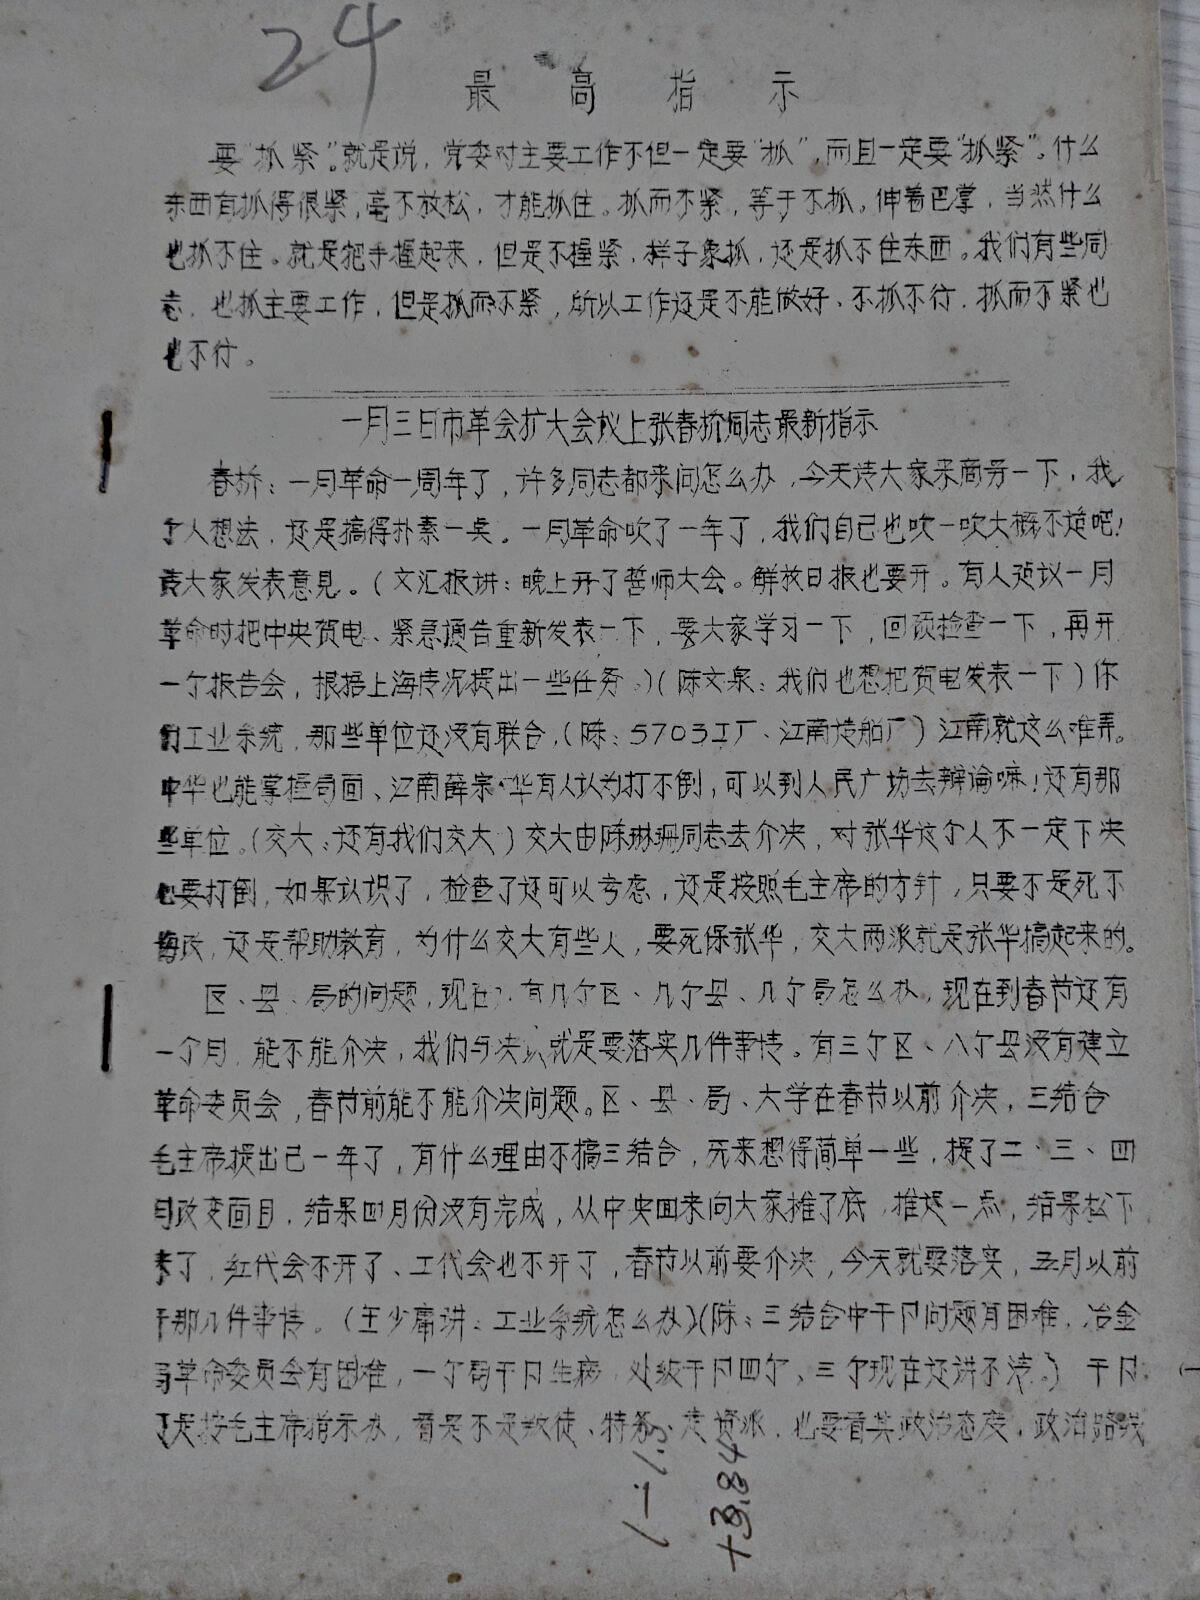 24
最高指示
要"抓紧"。就是说，党委对主要工作不但一定要"抓"，而且一定要"抓紧"。什么
东西有抓得很紧，毫不放松，才能抓住。抓而不紧，等于不抓。伸着巴掌，当然什么
也抓不住。就是把手握起来，但是不握紧，样子象抓，还是抓不住东西。我们有些同
志，也抓主要工作，但是抓而不紧，所以工作还是不能做好。不抓不行，抓而不紧也
也不行。
一月三日市革会扩大会议上张春桥同志最新指示
春桥：一月革命一周年了，许多同志都来问怎么办，今天请大家来商劳一下，我
个人想法，还是搞得朴素一奌。一月革命吹了一年了，我们自己也吹一吹大概不适吧！
请大家发表意见。（文汇报讲：晚上开了誓师大会。解放日报也要开。有人建议一月
革命时把中央贺电、紧急通告重新发表一下，要大家学习一下，回顾检查一下，再开
一个报告会，根据上海情况提出一些任务。）（陈文泉：我们也想把贺电发表一下）你
们工业系统，那些单位还没有联合，（陈：5703工厂、江南造船厂）江南就这么难弄。
中华也能掌握局面、江南薛宗华有人认为打不倒，可以到人民广场去辩论嘛！还有那
些单位。（交大：还有我们交大）交大由陈琳珊同志去介决，对张华这个人不一定下决
心要打倒，如果认识了，检查了还可以考虑，还是按照毛主席的方针，只要不是死不
悔改，还是帮助教育，为什么交大有些人，要死保张华，交大两派就是张华搞起来的。
区、县、局的问题，现在 有几个区、几个县、几个局怎么办，现在到春节还有
一个月，能不能介决，我们与决 就是要落实几件事情。有三个区、八个县没有建立
革命委员会，春节前能不能介决问题。区、县、局、大学在春节以前介决，三结合
毛主席提出已一年了，有什么理由不搞三结合，死来想得简单一些，提了二、三、四
月改变面目，结果四月份没有完成，从中央回来向大家摊了底，推迟一点，结果松下
来了，红代会不开了、工代会也不开了，春节以前要介决，今天就要落实，五月以前
干那几件事情。（王少庸讲：工业系统怎么办）（陈：三结合中干卩问题有困难，冶金
局革命委员会有困难，一个局干卩生病，处级干卩四个，三个现在还讲不清。）干卩（一
是按毛主席指示办，看是不是叛徒、特务、走资派，也要看其政治态度，政治路线
1－1.3
+3.84